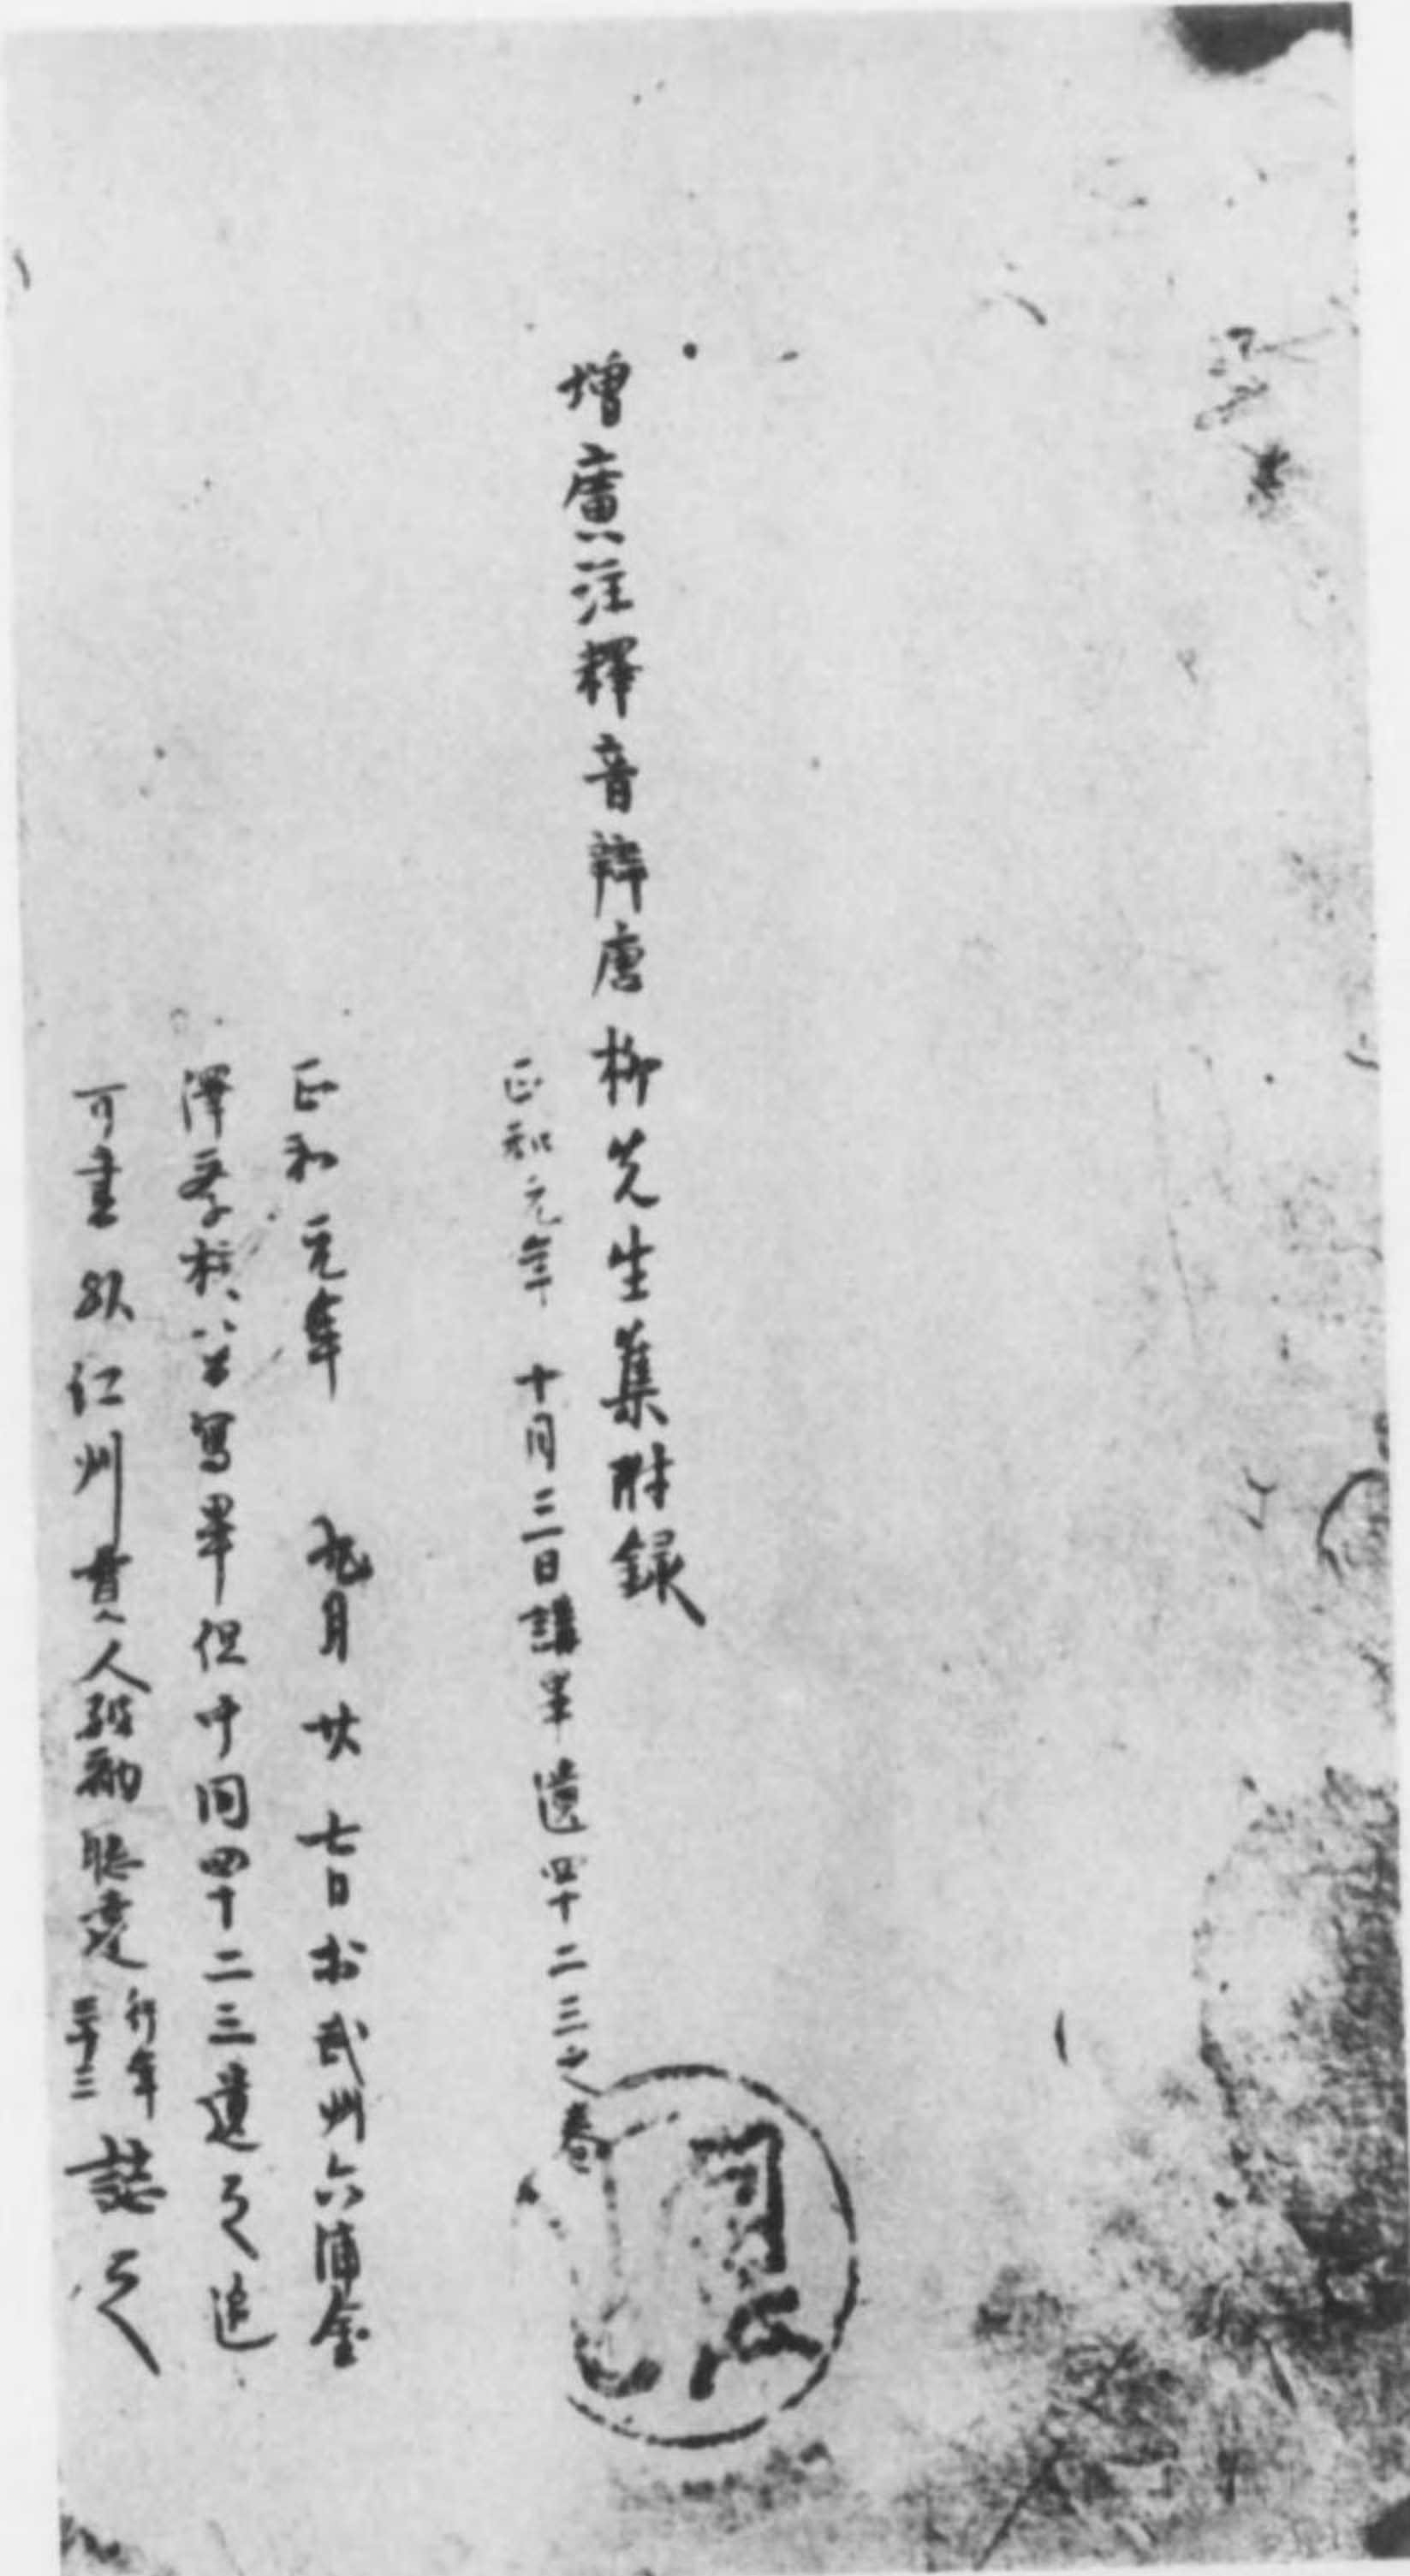 増廣注釋音辯唐柳先生集附録
正和元年 十月三日講畢遺四十二三之卷
正和元年 九月廿七日於武州六浦金
澤学校 写畢但中間四十二三遺之追
可書 紅州貫人 行年三十三 誌之